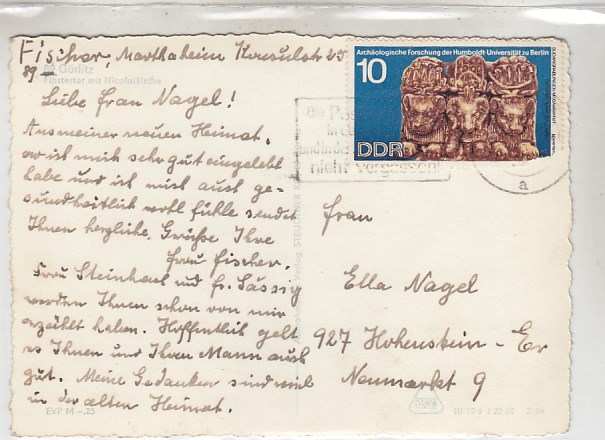 Fischer, Marthaheim Konsulstr 25
89
89 Görlitz
Finstertor mit Nicolaikirche
Liebe Frau Nagel!
Aus meiner neuen Heimat,
wo ich mich sehr gut eingelebt
habe und ich mich auch ge-
sundheitlich wohl fühle sendet
Ihnen herzliche Grüße Ihre
Frau Fischer.
Frau Steinhael und Fr. Sässig
werden Ihnen schon von mir
erzählt haben. Hoffentlich geht
es Ihnen und Ihren Mann auch
gut. Meine Gedanken sind viel
in der alten Heimat.
EVP M -,25
Verlag
Archäologische Forschung der Humboldt-Universität zu Berlin
10
DDR
nicht vergessen!
a
Frau
Ella Nagel
927 Hohenstein-Er
Neumarkt 9